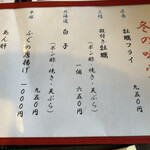 冬の味
広島
牡蠣フライ
九五〇円
三陸
殻付き牡蠣
(ポン酢・焼き・天ぷら)
一個 六五〇円
北海道
白子
(ポン酢・焼き・天ぷら)
九五〇円
ふぐの唐揚げ
一〇〇〇円
あん肝